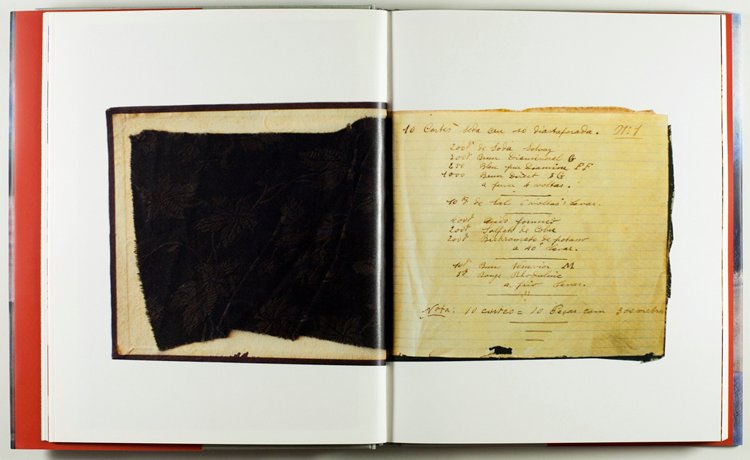 10 Cortes Seda cru no diasuperada. Nº 1
200gr de Soda Solvay
300gr Brun Diamineral G
250 Bleu pur Diamine FF
1000 Brun Direct 3G
a ferver 4 voltas.
10 de Sal 6 voltas: Lavar.
400gr acido formico
200gr Sulfato de Cobre
200gr Bichromato de potassa
a 40º Lavar.
10gr Brun M
5gr Rouge Rhoduline
a frio Lavar.
Nota: 10 cortes = 10 Peças com 300 metros